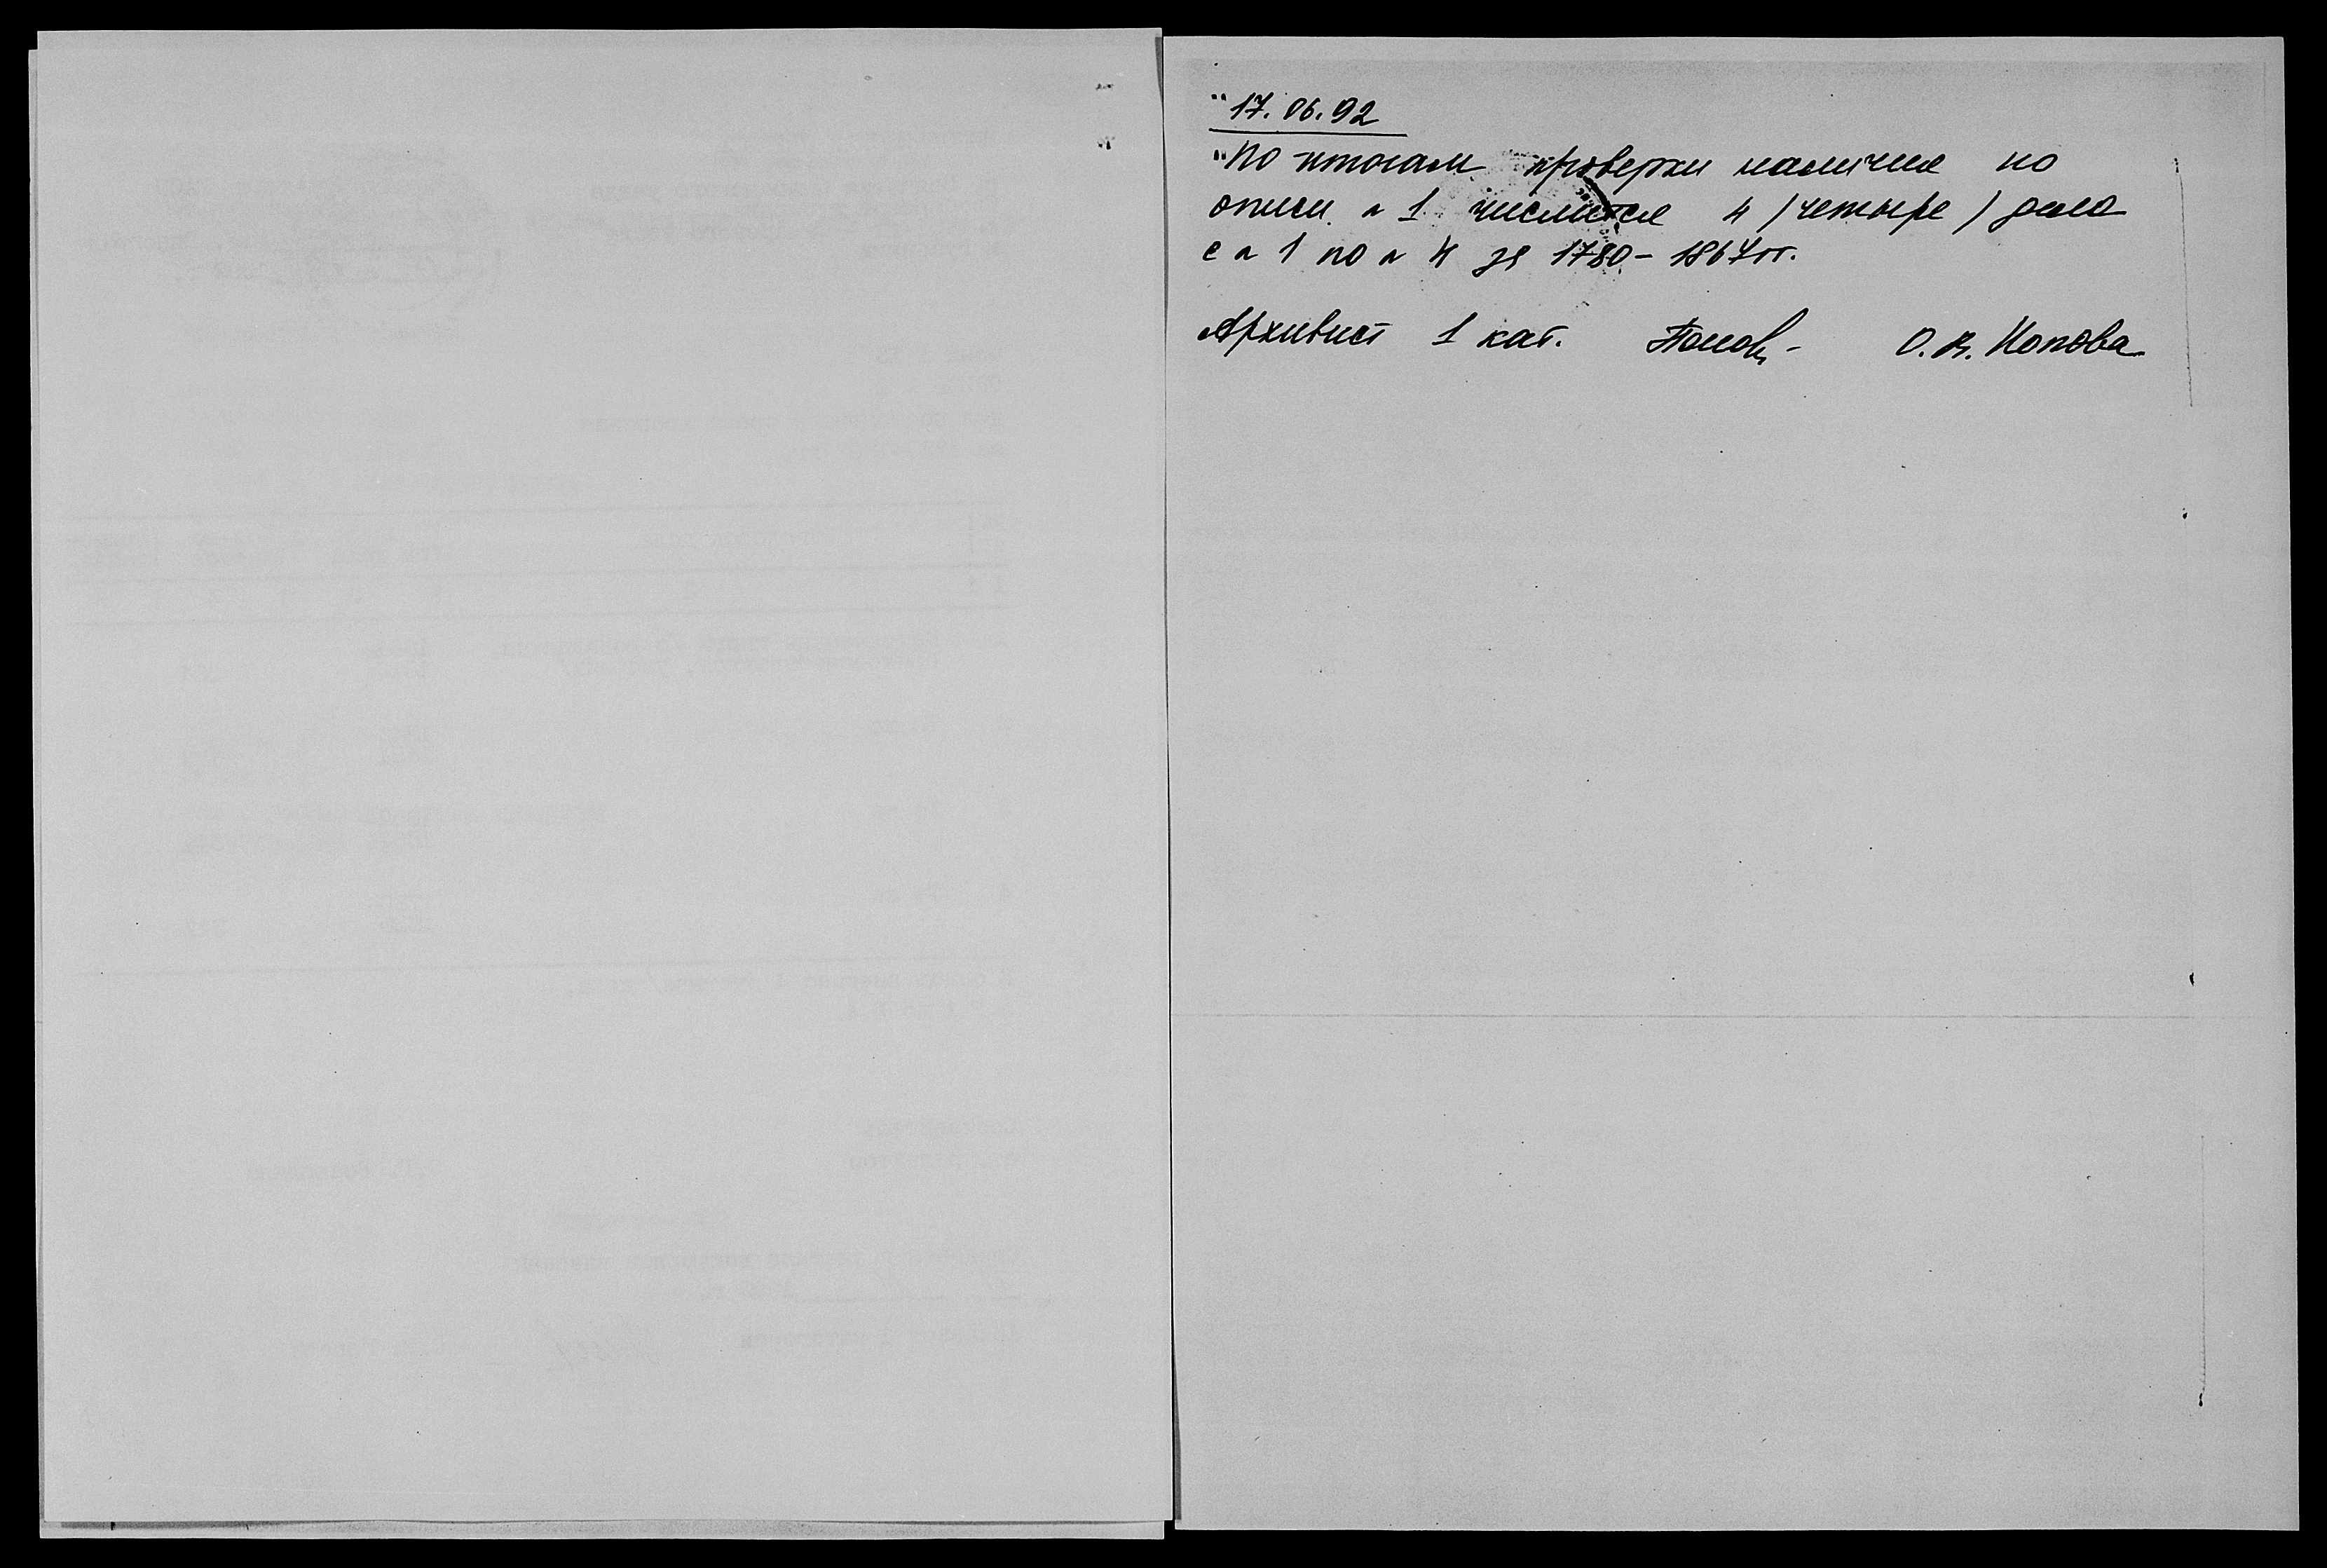 "17.06.92
"По итогам проверки наличия по
описи n 1 числится 4 (четыре) дела
с n 1 по n 4 за 1780-1867гг.
Архивист 1 кат. О.В. Попова